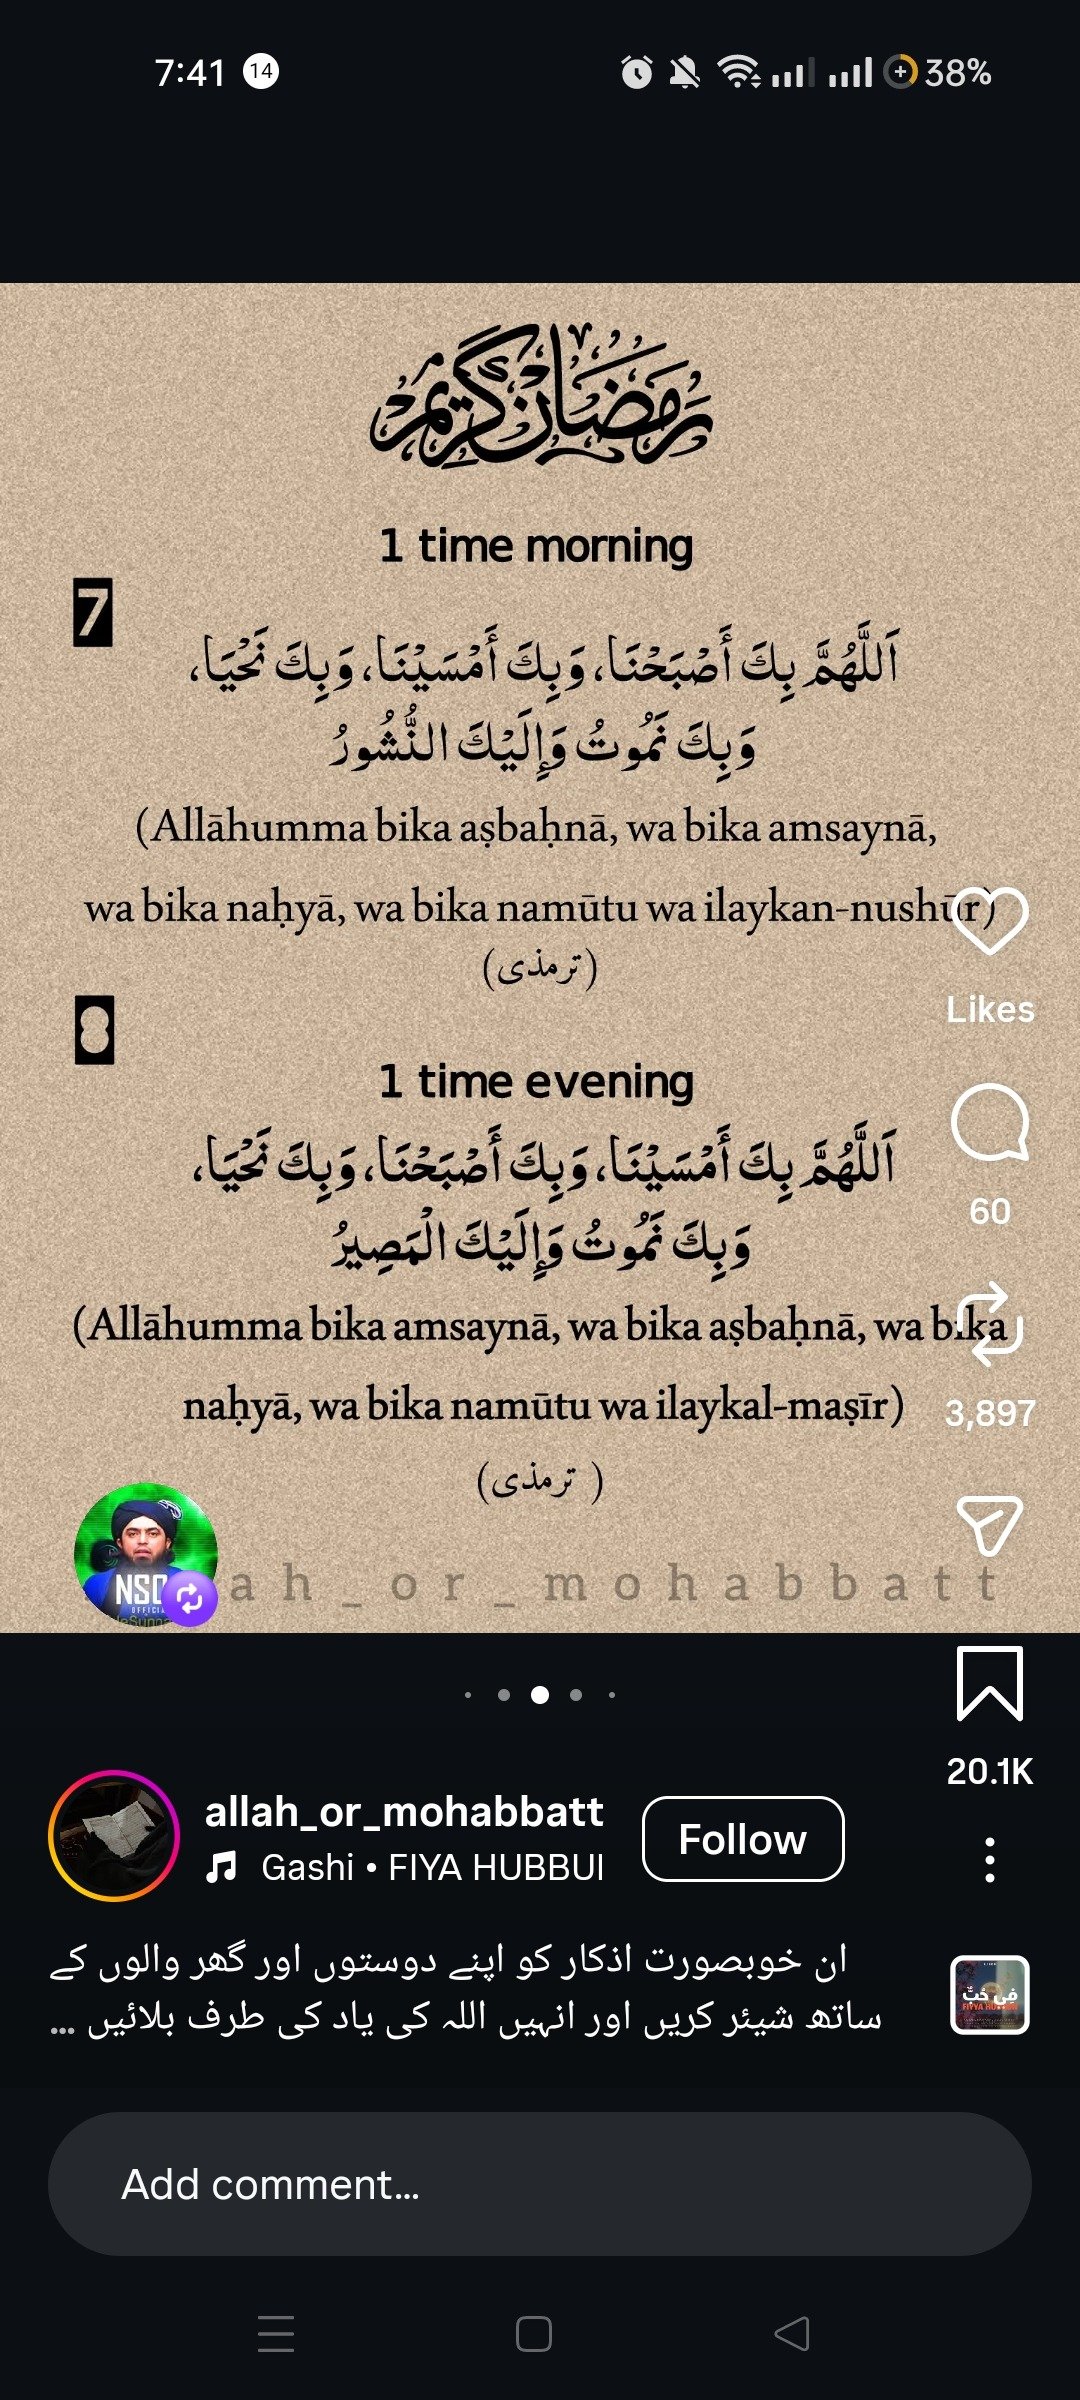 7:41 14 38%
رمضان كريم
1 time morning
7
اَللَّهُمَّ بِكَ أَصْبَحْنَا، وَبِكَ أَمْسَيْنَا، وَبِكَ نَحْيَا،
وَبِكَ نَمُوتُ وَإِلَيْكَ النُّشُورُ
(Allāhumma bika aṣbaḥnā, wa bika amsaynā,
wa bika naḥyā, wa bika namūtu wa ilaykan-nushūr)
(ترمذی)
Likes
8
1 time evening
اَللَّهُمَّ بِكَ أَمْسَيْنَا، وَبِكَ أَصْبَحْنَا، وَبِكَ نَحْيَا،
وَبِكَ نَمُوتُ وَإِلَيْكَ الْمَصِيرُ
60
(Allāhumma bika amsaynā, wa bika aṣbaḥnā, wa bika
naḥyā, wa bika namūtu wa ilaykal-maṣīr)
3,897
(ترمذی )
NSO
ah_or_mohabbatt
20.1K
allah_or_mohabbatt
Follow
Gashi • FIYA HUBBUI
ان خوبصورت اذکار کو اپنے دوستوں اور گھر والوں کے
ساتھ شیئر کریں اور انہیں اللہ کی یاد کی طرف بلائیں ...
في حُبّ
Add comment...